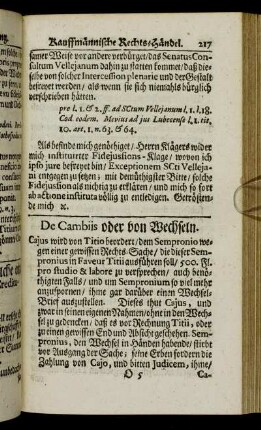 Kauffmännische Rechts-Händel. 217
samer Weise vor andere verbürget / das Senatus Con-
sultum Vellejanum dahin zu statten komme / daß die-
selbe von solcher Intercession plenarie und der Gestalt
befreiet werden / als wenn sie sich niemahls bürglich
verschrieben hätten.
pro l. 1. & 2. ff. ad SCtum Vellejanum l. 1. l. 18.
Cod. eodem. Mevius ad jus Lubecense l. 1. tit.
10. art. 1. n. 63. & 64.
Als befinde mich genöthiget / Herrn Klägers wider
mich instituirter Fidejussions-Klage / wovon ich
ipso jure befreyet bin / Exceptionem SCti Velleja-
ni entgegen zu setzen; mit demüthigster Bitte / solche
Fidejussion als nichtig zu erklären / und mich so fort
ab actione instituta völlig zu entledigen. Getröste-
de mich ꝛc.
De Cambiis oder von Wechseln.
Cajus wird von Titio beordert / dem Sempronio we-
gen einer gewissen Rechts-Sache / die dieser Sem-
pronius in Faveur Titii ausführen soll / 500. Fl.
pro studio & labore zu versprechen / auch benö-
thigten Falls / und um Sempronium so viel mehr
anzuspornen / ihme gar darüber einen Wechsel-
Brief auszustellen. Dieses thut Cajus, und
zwar in seinen eigenen Nahmen / ohne in den Wech-
sel zu gedencken / daß es vor Rechnung Titii, oder
zu einen gewissen End und Absicht geschehen. Sem-
pronius, den Wechsel in Händen habende / stirbt
vor Ausgang der Sache / seine Erben fordern die
Zahlung von Cajo, und bitten Judicem, ihme /
O 5 Ca-